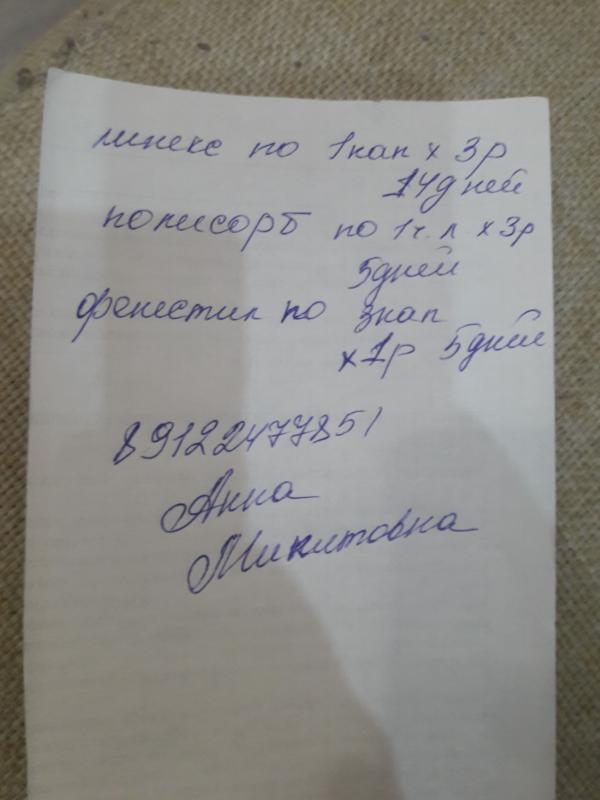 линекс по 1кап х 3р
14дней
полисорб по 1ч.л. х 3р
5дней
фенистил по 3кап
х 1р 5дней
89122477851
Анна
Микитовна